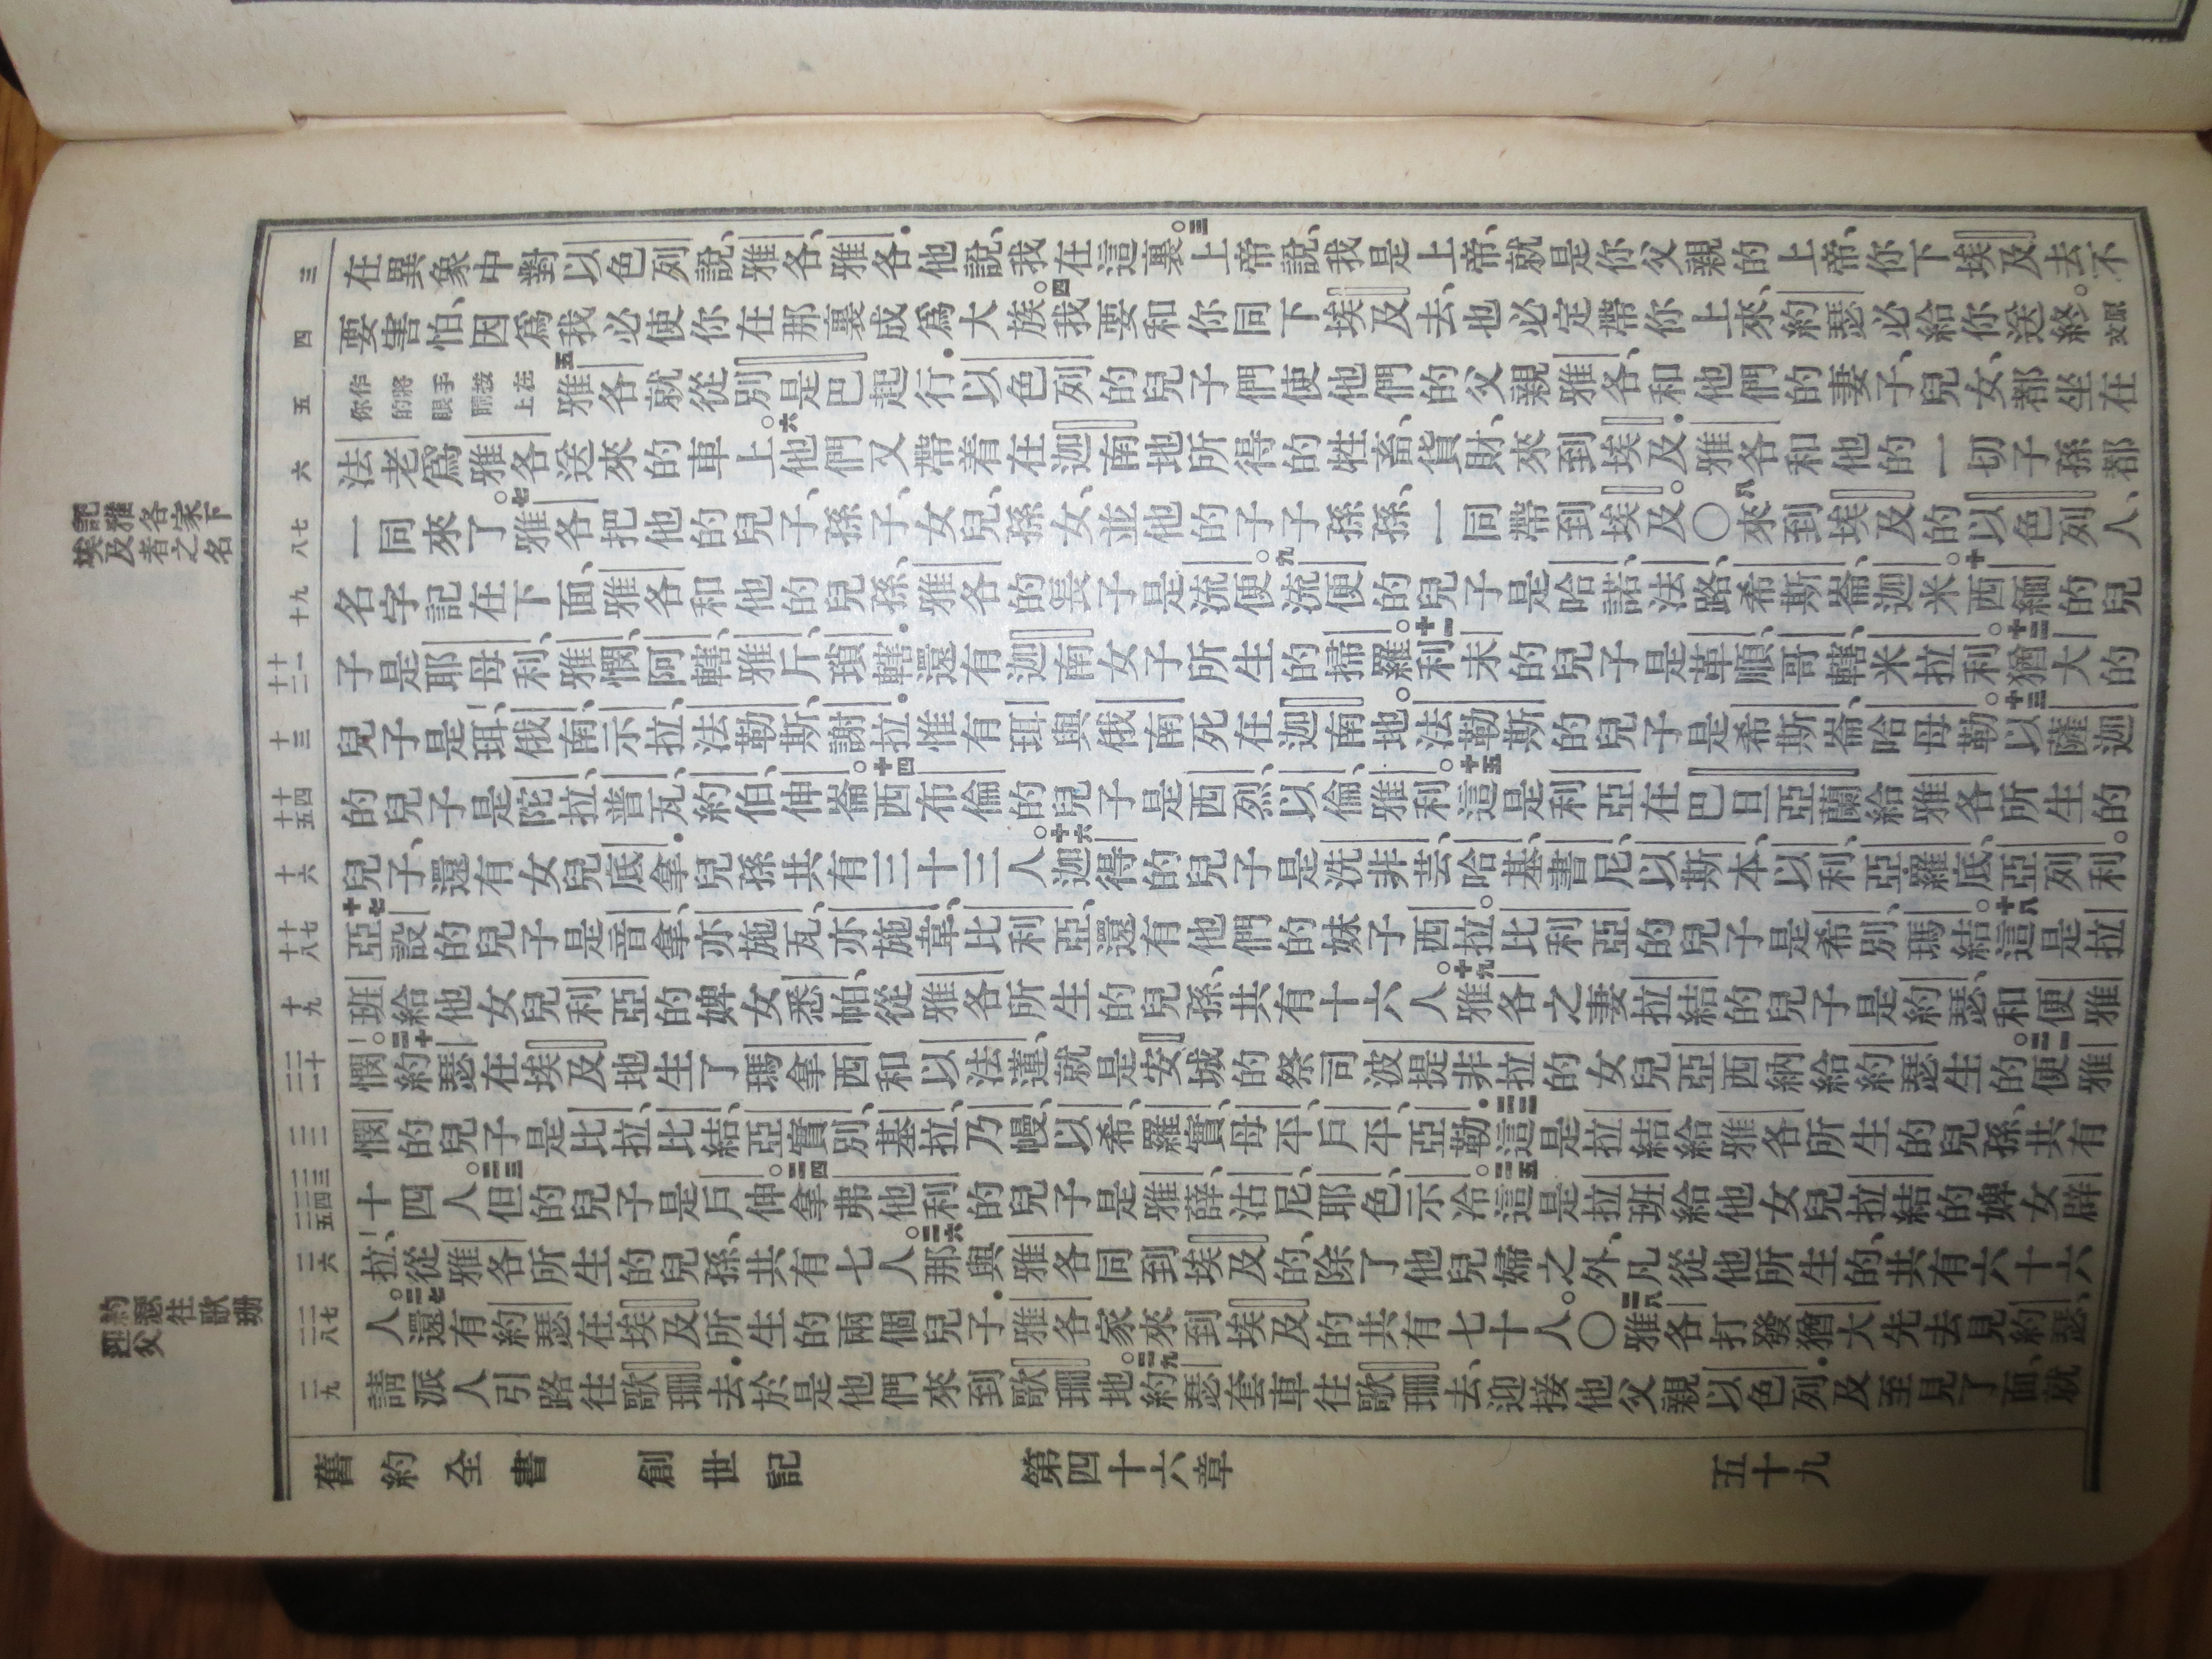 在異象中對以色列說、雅各、雅各．他說、我在這裏。三上帝說、我是上帝、就是你父親的上帝、你下埃及去、不
要害怕、因爲我必使你在那裏成爲大族。四我要和你同下埃及去、也必定帶你上來、約瑟必給你送終。原文
作將手按在你的眼睛上五雅各就從別是巴起行．以色列的兒子們使他們的父親雅各、和他們的妻子、兒女、都坐在
法老爲雅各送來的車上。六他們又帶着在迦南地所得的牲畜、貨財、來到埃及．雅各和他的一切子孫都
一同來了。七雅各把他的兒子、孫子、女兒、孫女、並他的子子孫孫、一同帶到埃及。〇八來到埃及的以色列人、
名字記在下面、雅各和他的兒孫、雅各的長子是流便。九流便的兒子是哈諾、法路、希斯崙、迦米。十西緬的兒
子是耶母利、雅憫、阿轄、雅斤、瑣轄．還有迦南女子所生的掃羅。十一利未的兒子是革順、哥轄、米拉利。十二猶大的
兒子是珥、俄南、示拉、法勒斯、謝拉．惟有珥與俄南死在迦南地。法勒斯的兒子是希斯崙、哈母勒。十三以薩迦
的兒子是陀拉、普瓦、約伯、伸崙。十四西布倫的兒子是西烈、以倫、雅利。十五這是利亞在巴旦亞蘭給雅各所生的
兒子、還有女兒底拿．兒孫共有三十三人。十六迦得的兒子是洗非芸、哈基、書尼、以斯本、以利、亞羅底、亞列利。
十七亞設的兒子是音拿、亦施瓦、亦施韋、比利亞、還有他們的妹子西拉。比利亞的兒子是希別、瑪結。十八這是拉
班給他女兒利亞的婢女悉帕、從雅各所生的兒孫、共有十六人。十九雅各之妻拉結的兒子是約瑟、和便雅
憫。二十約瑟在埃及地生了瑪拿西和以法蓮、就是安城的祭司波提非拉的女兒亞西納給約瑟生的。二一便雅
憫的兒子是比拉、比結、亞實別、基拉、乃幔、以希、羅實、母平、戶平、亞勒．二二這是拉結給雅各所生的兒孫、共有
十四人。二三但的兒子是戶伸。二四拿弗他利的兒子是雅薛、沽尼、耶色、示冷。二五這是拉班給他女兒拉結的婢女辟
拉、從雅各所生的兒孫、共有七人。二六那與雅各同到埃及的、除了他兒婦之外、凡從他所生的、共有六十六
人。二七還有約瑟在埃及所生的兩個兒子．雅各家來到埃及的共有七十人。〇二八雅各打發猶大先去見約瑟、
請派人引路往歌珊去．於是他們來到歌珊地。二九約瑟套車往歌珊去、迎接他父親以色列．及至見了面、就
舊約全書　創世記　第四十六章　五十九
三
四
五
六
七
八
九
十
十一
十二
十三
十四
十五
十六
十七
十八
十九
二十
二一
二二
二三
二四
二五
二六
二七
二八
二九
記雅各家下
埃及者之名
約瑟往歌珊
迎父